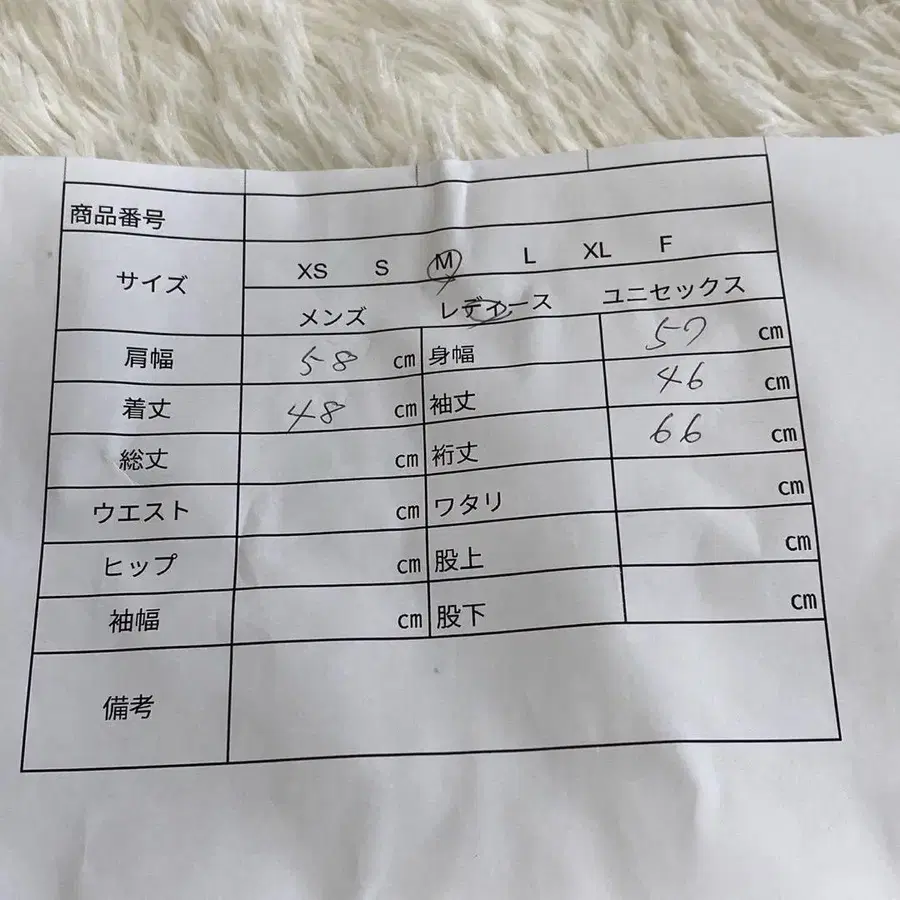 商品番号
サイズ XS S M L XL F
メンズ レディース ユニセックス
肩幅 58 cm 身幅 57 cm
着丈 48 cm 袖丈 46 cm
総丈 cm 裄丈 66 cm
ウエスト cm ワタリ cm
ヒップ cm 股上 cm
袖幅 cm 股下 cm
備考